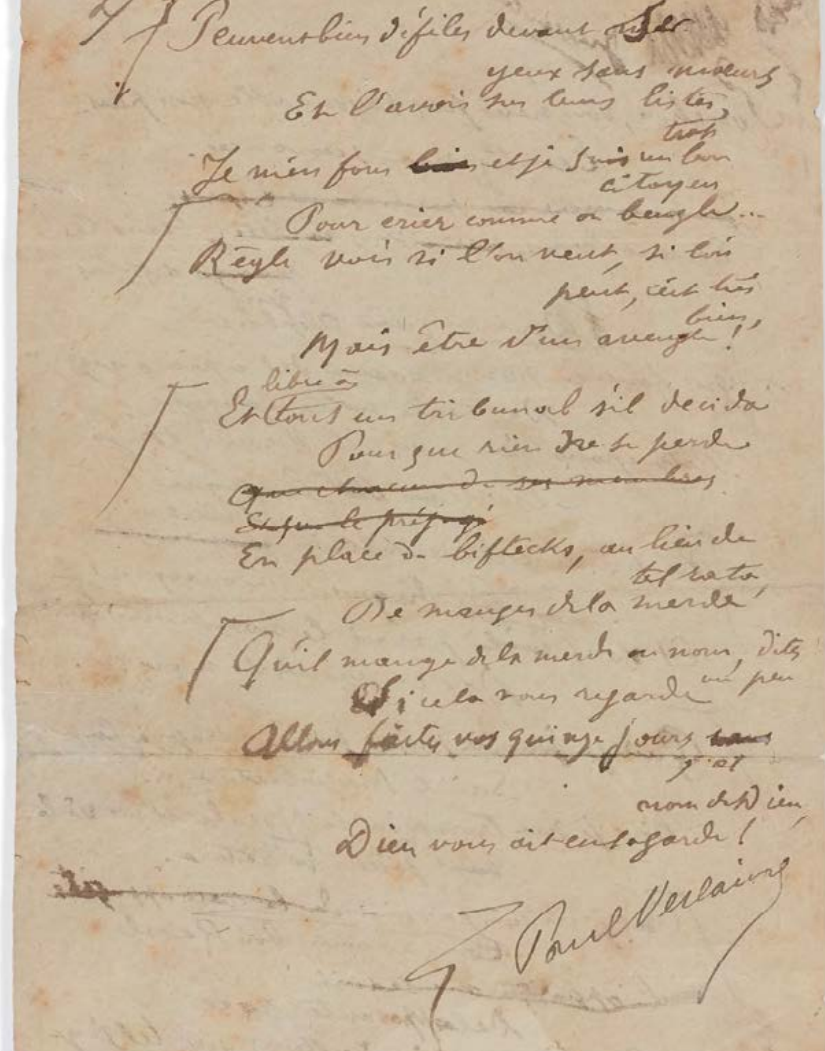 Peuvent bien défiler devant ses
yeux sans mœurs
Et l'avoir sur leurs listes,
trop
Je m'en fous bien et je suis un bon
citoyen
Pour crier comme on beugle...
Règle vois si l'on veut, si l'on
peut, c'est très
bien,
Mais être d'un aveugle !
libre à
Et tout un tribunal s'il décida
Pour que rien ne se perde
Que chacun de ses membres
Et que le préjugé
En place de biftecks, au lieu de
tel rata,
De manger de la merde
Qu'il mange de la merde ou non, dites
un peu
Si cela vous regarde
Allons faites vos quinze jours
nom de Dieu,
Dieu vous ait en sa garde !
Paul Verlaine